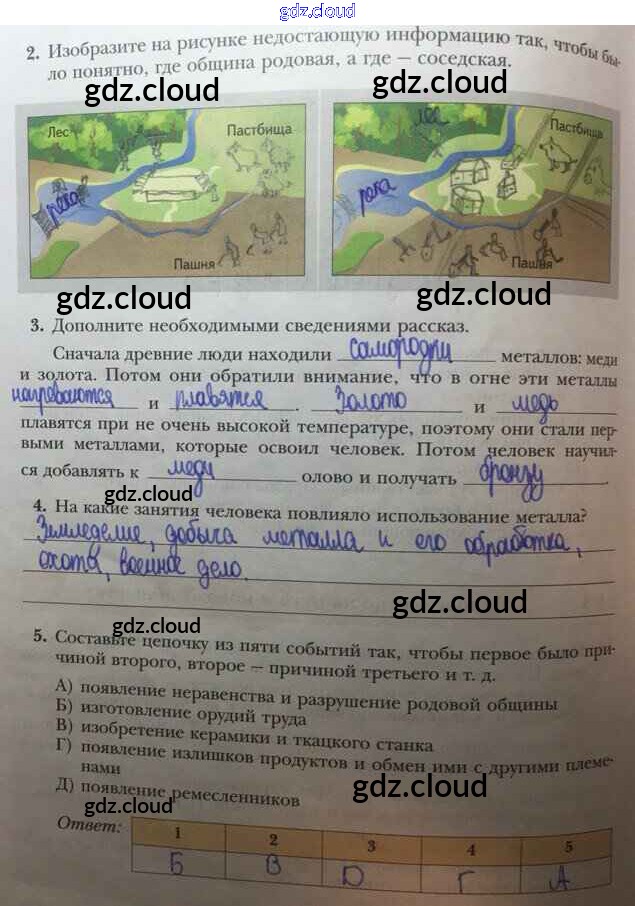 gdz.cloud
2. Изобразите на рисунке недостающую информацию так, чтобы бы-
ло понятно, где община родовая, а где — соседская.
gdz.cloud
gdz.cloud
Лес
Пастбища
река
Пашня
лес
Пастбища
река
Пашня
gdz.cloud
gdz.cloud
3. Дополните необходимыми сведениями рассказ.
Сначала древние люди находили самородки металлов: меди
и золота. Потом они обратили внимание, что в огне эти металлы
нагреваются и плавятся. Золото и медь
плавятся при не очень высокой температуре, поэтому они стали пер-
выми металлами, которые освоил человек. Потом человек научил-
ся добавлять к меди олово и получать бронзу.
gdz.cloud
4. На какие занятия человека повлияло использование металла?
Земледелие, добыча металла и его обработка,
охота, военное дело.
gdz.cloud
gdz.cloud
5. Составьте цепочку из пяти событий так, чтобы первое было при-
чиной второго, второе — причиной третьего и т. д.
А) появление неравенства и разрушение родовой общины
Б) изготовление орудий труда
В) изобретение керамики и ткацкого станка
Г) появление излишков продуктов и обмен ими с другими племе-
нами
Д) появление ремесленников
gdz.cloud
gdz.cloud
Ответ:
1 2 3 4 5
Б В D Г А